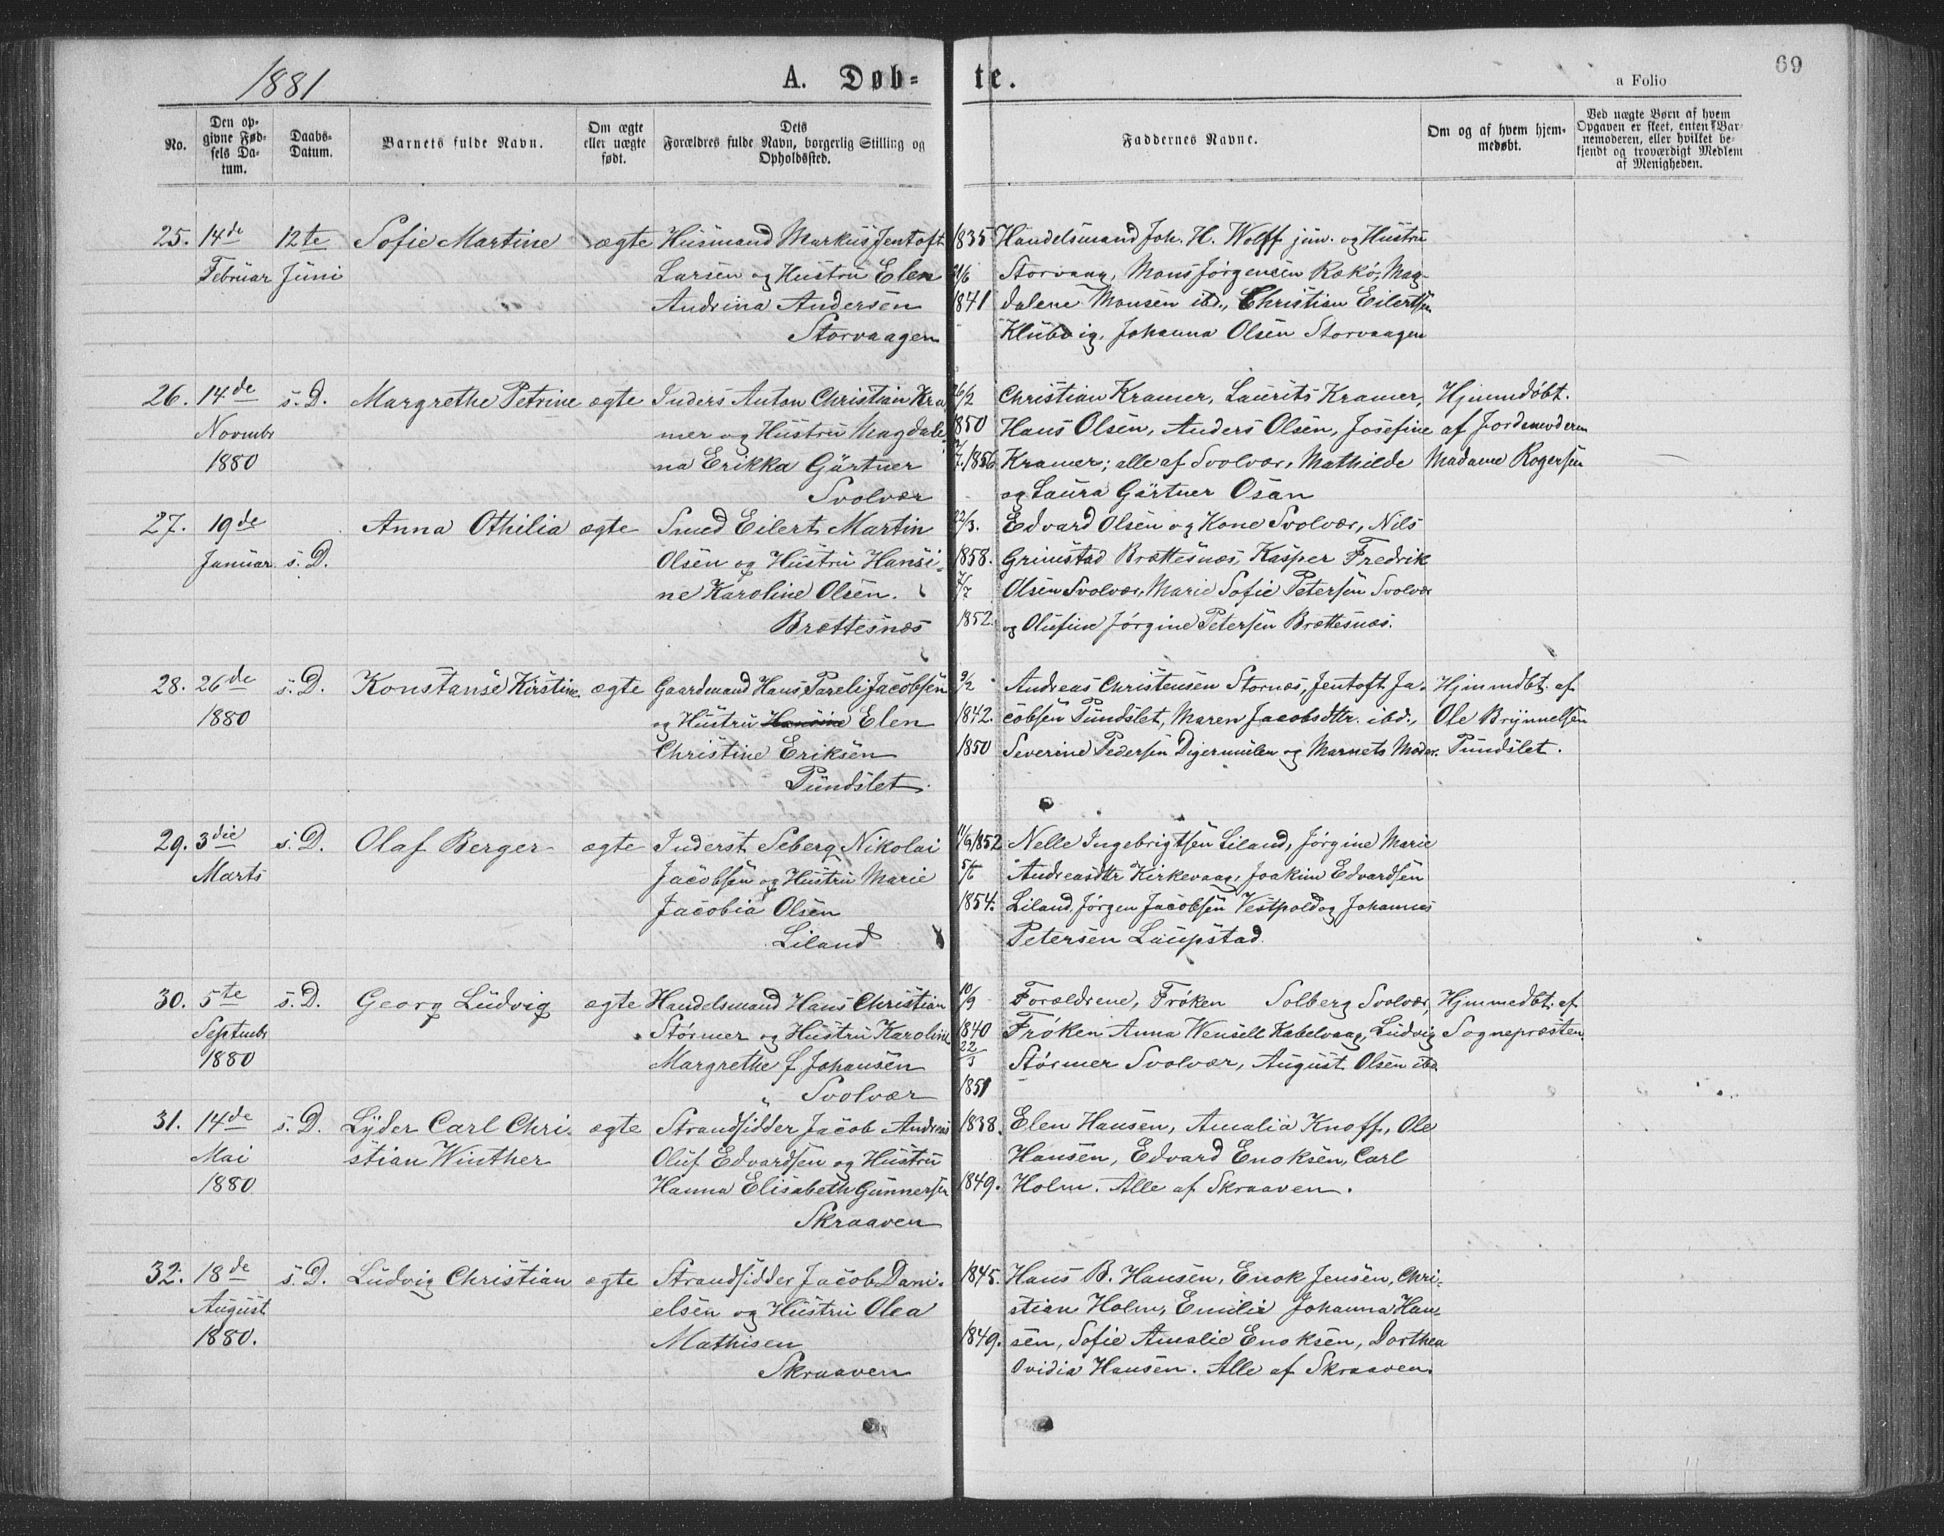 1881
A. Døb-
te.
a Folio
69
No.
Den op-
givne Fød-
sels Da-
tum.
Daabs-
Datum.
Barnets fulde Navn.
Om ægte
eller uægte
født.
Dets
Forældres fulde Navn, borgerlig Stilling og
Opholdssted.
Faddernes Navne.
Om og af hvem hjem-
medøbt.
Ved uægte Børn af hvem
Opgaven er skeet, enten Bar-
nemoderen, eller hvilket be-
kjendt og troværdigt Medlem
af Menigheden.
25. 14de 12te Sofie Martine ægte Husmand Markus Jentoft 1835 Handelsmand Joh. H. Wolff jun. og Hustru
Februar Juni Larsen og Hustru Elen Storvaag, Mons Jørgensen Rækø, Mag-
Andrina Andersen 1841 dalene Monsen ibd., Christian Eilertsen
Storvaagen Johanna Olsen Storvaagen
26. 14de s. D. Margrethe Petrine ægte Inders Anton Christian Kra 26/2 Christian Kramer, Laurits Kramer, Hjmmdøbt.
Novmbr mer og Hustru Magdale 1850 Hans Olsen, Anders Olsen, Josefine af Jordemoderen
1880 na Erikka Gärtner 1856 Kramer; alle af Svolvær, Mathilde Madame Rogersen
Svolvær og Laura Gärtner Osan
27. 19de Anna Othilia ægte Smed Eilert Martin 22/3. Edvard Olsen og Kone Svolvær, Nils
Januar s. D. Olsen og Hustru Hansi- 1858. Grimstad Brættesnæs, Kasper Fredrik
ne Karoline Olsen. Olsen Svolvær, Marie Sofie Petersen Svolvær
Brættesnæs 1852. og Olufine Jørgine Petersen Brættesnæs.
28. 26de s. D. Konstanse Kirstine ægte Gaardmand Hans Pareli Jacobsen 9/2 Andreas Christensen Stornæs, Jentoft Ja- Hjmmdbt. af
1880 og Hustru Hansine Elen 1842. cobsen Pundslet, Maren Jacobsdtr. ibd., Ole Brynnelsen
Christine Eriksen 1850 Severine Pedersen Digermulen og Barnets Moder. Pundslet.
Pundslet.
29. 3die s. D. Olaf Berger ægte Inderst Seberg Nikolai 11/9 1852 Nelle Ingebrigtsen Liland, Jørgine Marie
Marts Jacobsen og Hustru Marie Andreasdtr Kirkevaag, Joakim Edvardsen
Jacobia Olsen 1854. Liland, Jørgen Jacobsen Vestpold og Johannes
Liland Petersen Laupstad.
30. 5te s. D. Georg Ludvig ægte Handelsmand Hans Christian 10/9 Forældrene, Frøken Solberg Svolvær, Hjmmedbt. af
Septmbr Størmer og Hustru Karoline 1840 Frøken Anna Wensell Kabelvaag, Ludvig Sognepræsten.
1880 Margrethe f. Johansen 22/3 Størmer Svolvær, August Olsen ibd
Svolvær 1851
31. 14de s. D. Lyder Carl Chri- ægte Strandsidder Jacob Andreas 1838. Elen Hansen, Amalia Knoff, Ole
Mai stian Winther Oluf Edvardsen og Hustru Hansen, Edvard Enoksen, Carl
1880 Hanna Elisabeth Gunnersen 1849. Holm. Alle af Skraaven.
Skraaven
32. 18de s. D. Ludvig Christian ægte Strandsidder Jacob Dani- 1845. Hans B. Hansen, Enok Jensen, Chri-
August elsen og Hustru Olea stian Holm, Emilie Johanna Han
1880. Mathisen 1849. sen, Sofie Amalie Enoksen, Dorthea
Skraaven Ovidia Hansen. Alle af Skraaven.